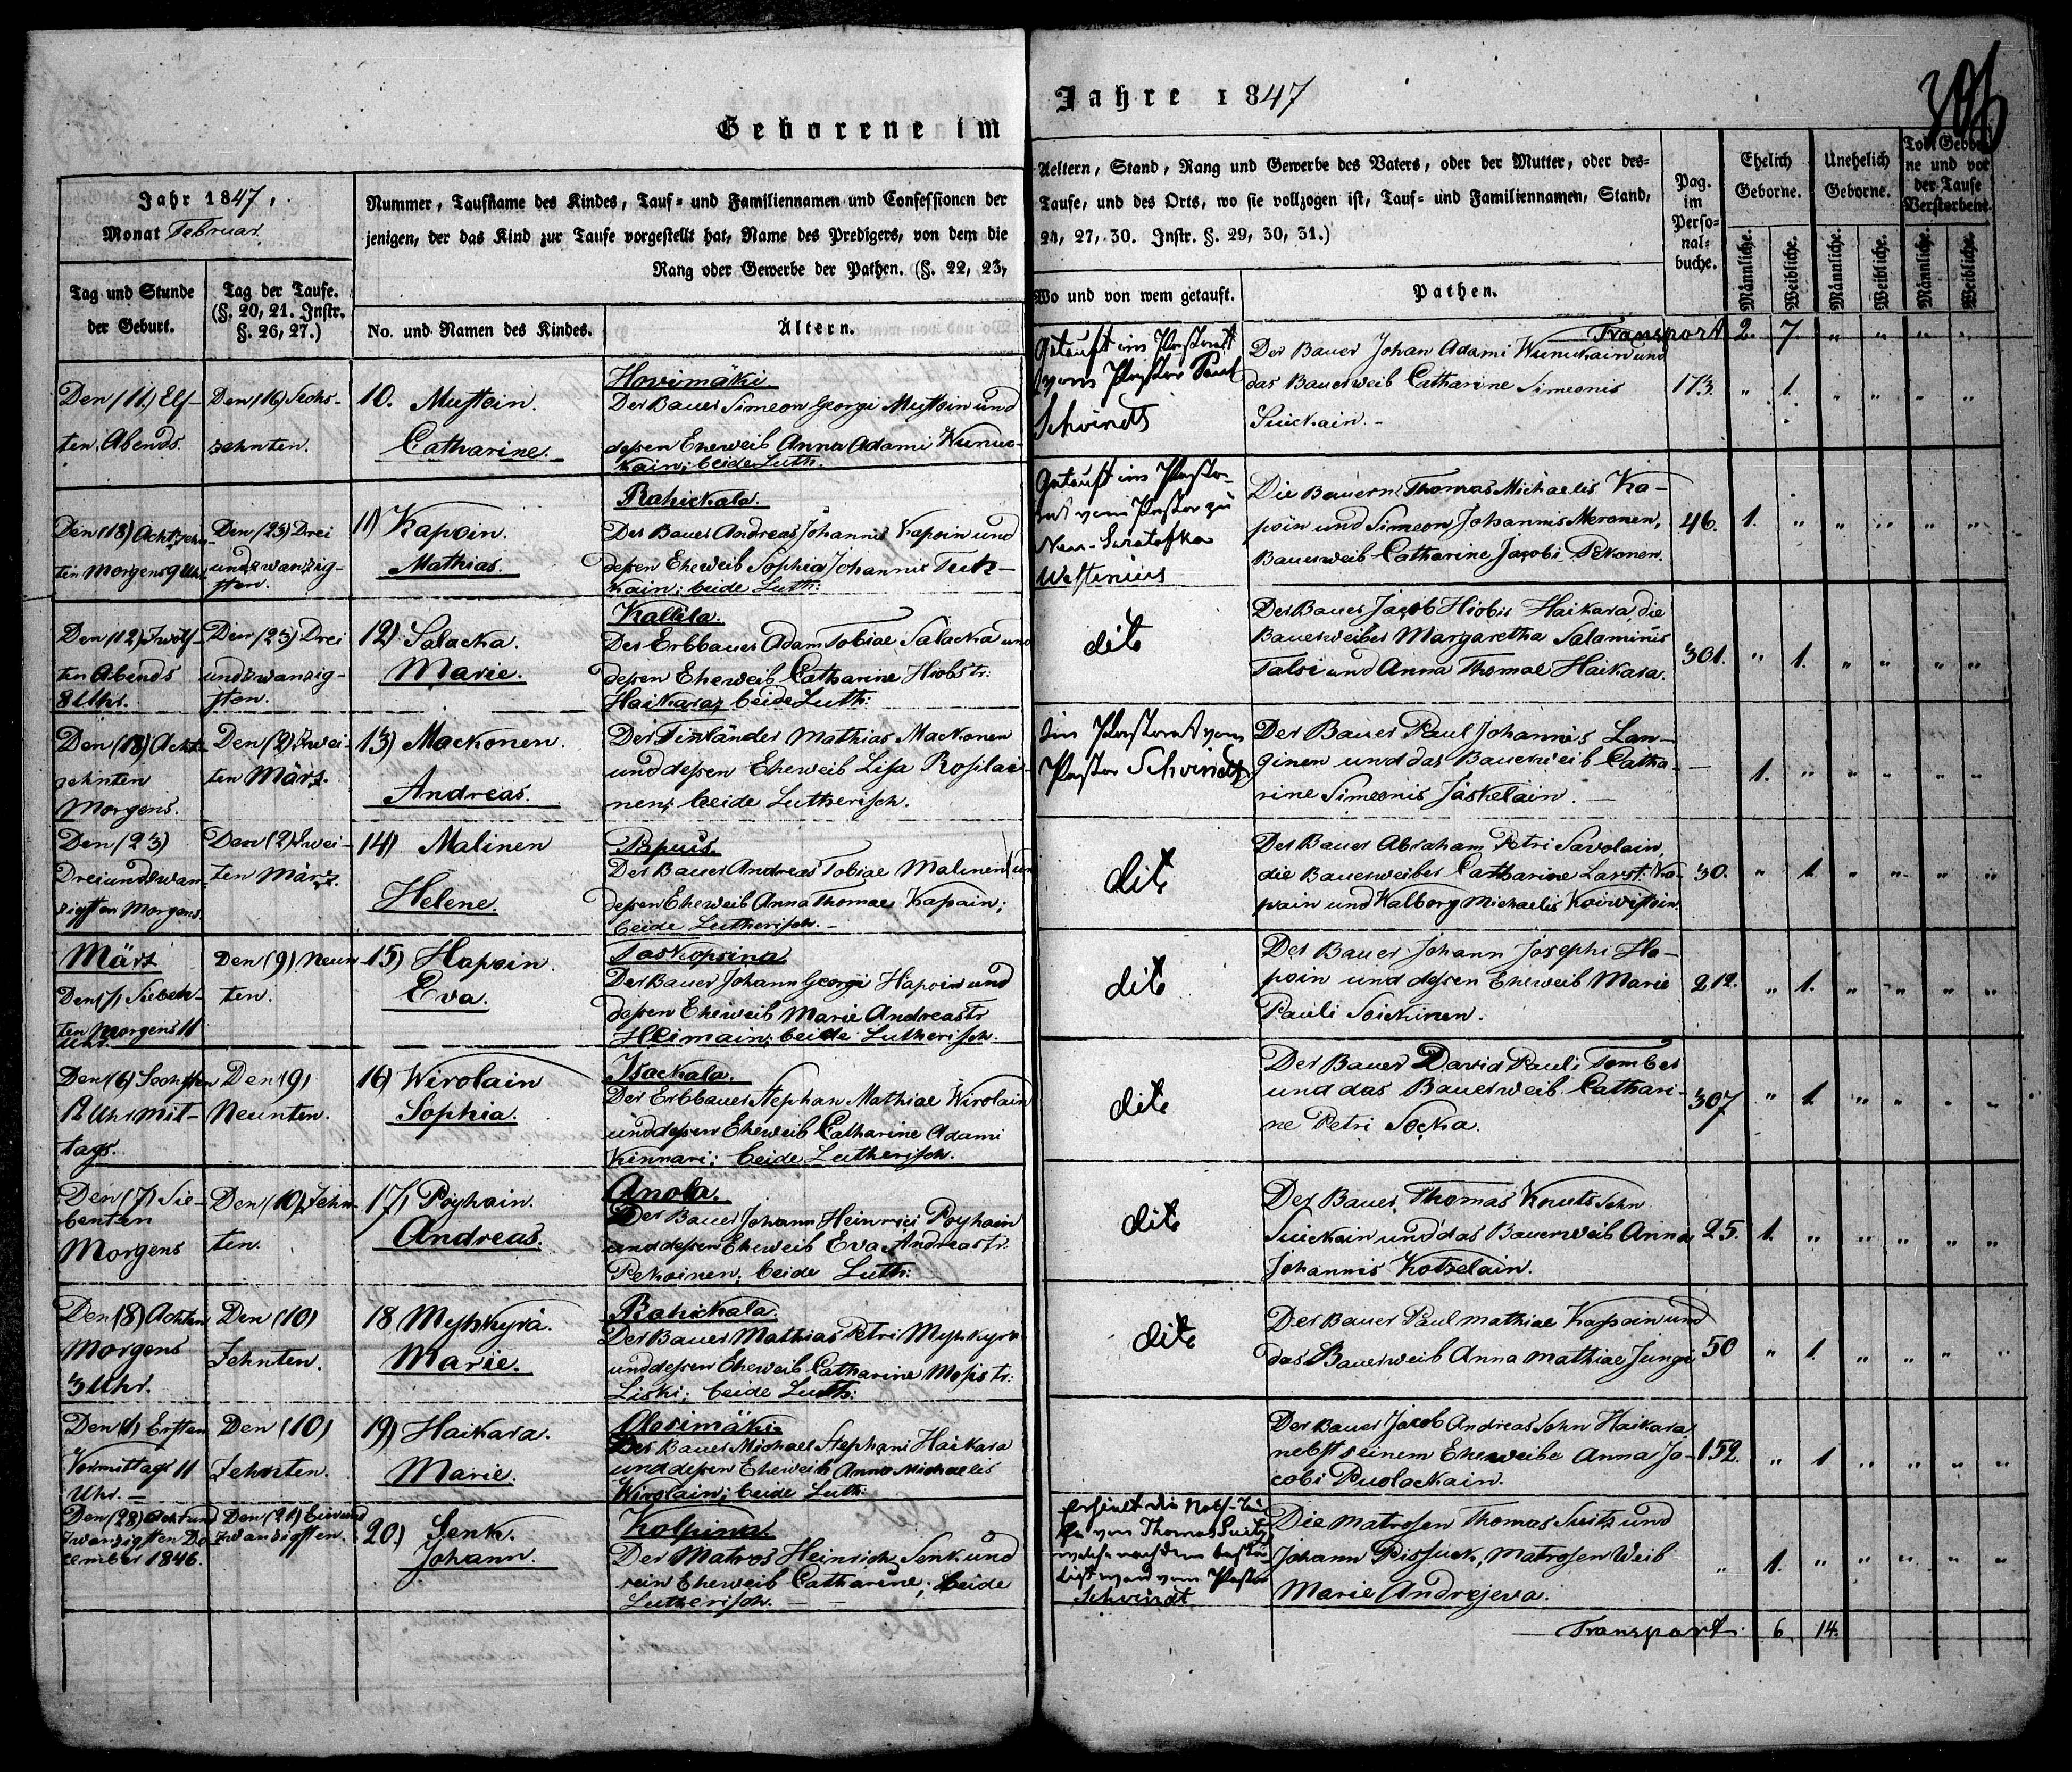 Geborene im
Jahre 1847
Jahr 1847.
Monat Februar.
Tag und Stunde
der Geburt.
Tag der Taufe.
(§. 20, 21. Instr.
§. 26, 27.)
Nummer, Taufname des Kindes, Tauf- und Familiennamen und Confessionen der
jenigen, der das Kind zur Taufe vorgestellt hat, Name des Predigers, von dem die
Rang oder Gewerbe der Pathen. (§. 22, 23,
No. und Namen des Kindes.
Ältern.
Aeltern, Stand, Rang und Gewerbe des Vaters, oder der Mutter, oder des-
Taufe, und des Orts, wo sie vollzogen ist, Tauf- und Familiennamen, Stand,
24, 27, 30. Instr. §. 29, 30, 31.)
Wo und von wem getauft.
Pathen.
Pag.
im
Perso-
nal-
buche.
Ehelich
Geborne.
Unehelich
Geborne.
Todt Gebor-
ne und vor
der Taufe
Verstorbene.
Männliche.
Weibliche.
Männliche.
Weibliche.
Männliche.
Weibliche.
Transport 2. 7. " " " "
Den (11.) Elf-
ten, Abends.
Den (16) Sechs-
zehnten.
10. Mustoin.
Catharine.
Hovimäki
Der Bauer Simeon Georgi Mustoin und
dessen Eheweib Anna Adami Wunu-
kain; beide Luth.
Getauft im Pastorat
vom Pastor Paul
Schvindt
Der Bauer Johan Adami Wunukain und
das Bauerweib Catharine Simeonis
Suickain. -
173. " 1. " " " "
Den (18) Achtzehn-
ten Morgens 9 Uhr.
Den (23) Drei
undzwanzig-
sten.
11) Kapoin.
Mathias.
Rahickala.
Der Bauer Andreas Johannis Kapoin und
dessen Eheweib Sophia Johannis Tuh-
kain; beide Luth:
Getauft im Pasto-
rat vom Pastor zu
Neu-Saratofka
Die Bauern Thomas Michaelis Ka-
poin und Simeon Johannis Meronen,
Bauerweib Catharine Jacobi Pekonen.
46. 1. " " " " "
Den (12) Zwölf-
ten Abends
8 Uhr.
Den (23) Drei
undzwanzig-
sten.
12) Salacka.
Marie.
Kallela.
Der Erbbauer Adam Tobiae Salacka und
dessen Eheweib Catharine Hiobs tr:
Haikara; beide Luth:
dito
Der Bauer Jacob Hiobis Haikara, die
Bauerweiber Margaretha Salaminis
Talsi und Anna Thomae Haikara.
301. " 1. " " " "
Den (18) Acht-
zehnten
Morgens.
Den (2) Zwei-
ten März.
13) Mackonen.
Andreas.
Der Finländer Mathias Mackonen
und dessen Eheweib Lisa Rosilai-
nen; beide Lutherisch.
Im Pastorat vom
Pastor Schvindt
Der Bauer Paul Johannis Lan-
ginen und das Bauerweib Catha-
rine Simeonis Jäskelain. -
— 1. " " " " "
Den (23)
Dreiundzwan-
zigsten Morgens.
Den (2) Zwei-
ten März.
14) Malinen
Helene.
Papuis.
Der Bauer Andreas Tobiae Malinen und
dessen Eheweib Anna Thomae Kapain;
beide Lutherisch. -
dito
Der Bauer Abraham Petri Savolain,
die Bauerweiber Catharine Lars t. Ka-
pain und Walborg Michaelis Koivistoin.
30. " 1. " " " "
März
Den (7) Sieben-
ten Morgens 11
Uhr.
Den (9) Neun-
ten.
15) Hapoin.
Eva.
Der Bauer Johann Georgi Hapoin und
dessen Eheweib Marie Andreas tr
Heimain; beide Lutherisch.
dito
Der Bauer Johann Josephi Ha-
poin und dessen Eheweib Marie
Pauli Soickinen.
212. " 1. " " " "
Den (6) Sechsten
12 Uhr Mit-
tags.
Den (9)
Neunten.
16) Wirolain
Sophia.
Isackala.
Der Erbbauer Stephan Mathiae Wirolain
und dessen Eheweib Catharine Adami
Kinnari; beide Lutherisch.
dito
Der Bauer David Pauli Tomber
und das Bauerweib Cathari-
ne Petri Socka.
307 " 1. " " " "
Den (7) Sie-
benten
Morgens
Den (10) Zehn-
ten.
17) Poyhain.
Andreas.
Anola.
Der Bauer Johann Heinrici Poyhain
und dessen Eheweib Eva Andreas tr.
Pekoinen; beide Luth:
dito
Der Bauer Thomas Knuts Sohn
Suickain und das Bauerweib Anna
Johannis Kotzelain.
25. 1. " " " " "
Den (8) Achten
Morgens
3 Uhr.
Den (10)
Zehnten.
18 Myhkyrä.
Marie.
Rahickala.
Der Bauer Mathias Petri Myhkyrä
und dessen Eheweib Catharine Mosis tr:
Liski; beide Luth:
dito
Der Bauer Paul Mathiae Kapoin und
das Bauerweib Anna Mathiae Jungi
50 " 1. " " " "
Den (1) Ersten
Vormittags 11
Uhr. -
Den (10)
Zehnten.
19) Haikara.
Marie.
Alosimäki
Der Bauer Michael Stephani Haikara
und dessen Eheweib Anna Michaelis
Wirolain; beide Luth:
Der Bauer Jacob Andreas Sohn Haikara
nebst seinem Eheweibe Anna Ja-
cobi Puolackain.
152. " 1 " " " "
Den (28) Achtund
zwanzigsten De-
cember 1846.
Den (21) Einund
zwanzigsten.
20.) Senk.
Johann.
Kolpina.
Der Matros Heinrich Senk und
sein Eheweib Catharine; beide
Lutherisch. - -
Erhielt die Noth-Tau-
fe von Thomas Suitz
welche nachdem bestä-
tigt ward vom Pastor
Schvindt
Die Matrosen Thomas Suitz und
Johann Pissuck, Matrosen Weib
Marie Andrejeva.
" 1. " " " " "
Transport. 6. 14.